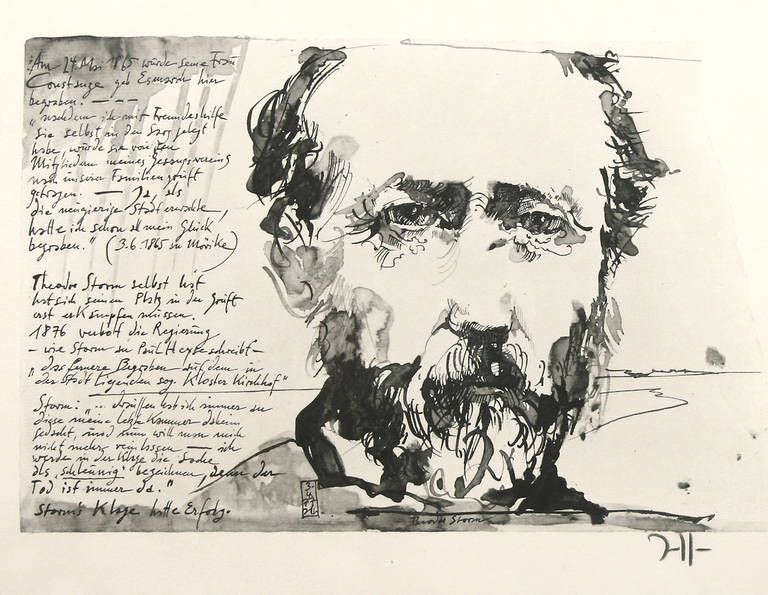 Am 24. Mai 1865 wurde seine Frau
Constanze geb Esmarch hier
begraben. — — —
"nachdem ich mit Freundeshilfe
sie selbst in den Sarg gelegt
habe, wurde sie von den
Mitgliedern meines Gesangvereins
nach unserer Familiengruft
getragen. — Ja, als
die neugierige Stadt erwachte,
hatte ich schon all mein Glück
begraben." (3.6.1865 zu Mörike)
Theodor Storm selbst hat
hat sich seinen Platz in der Gruft
erst erkämpfen müssen.
1876 verbot die Regierung
- wie Storm an Paul Heyse schreibt -
"das fernere Begraben auf dem in
der Stadt liegenden sog. Kloster Kirchhof"
Storm: ".. habe ich immer an
diese meine letzte Kammer
gedacht, und nun will man mich
nicht mehr rein lassen — ich
werde in der Klage die Sache
als 'schleunig' bezeichnen, denn der
Tod ist immer da."
Storm's Klage hatte Erfolg.
Theodor Storm